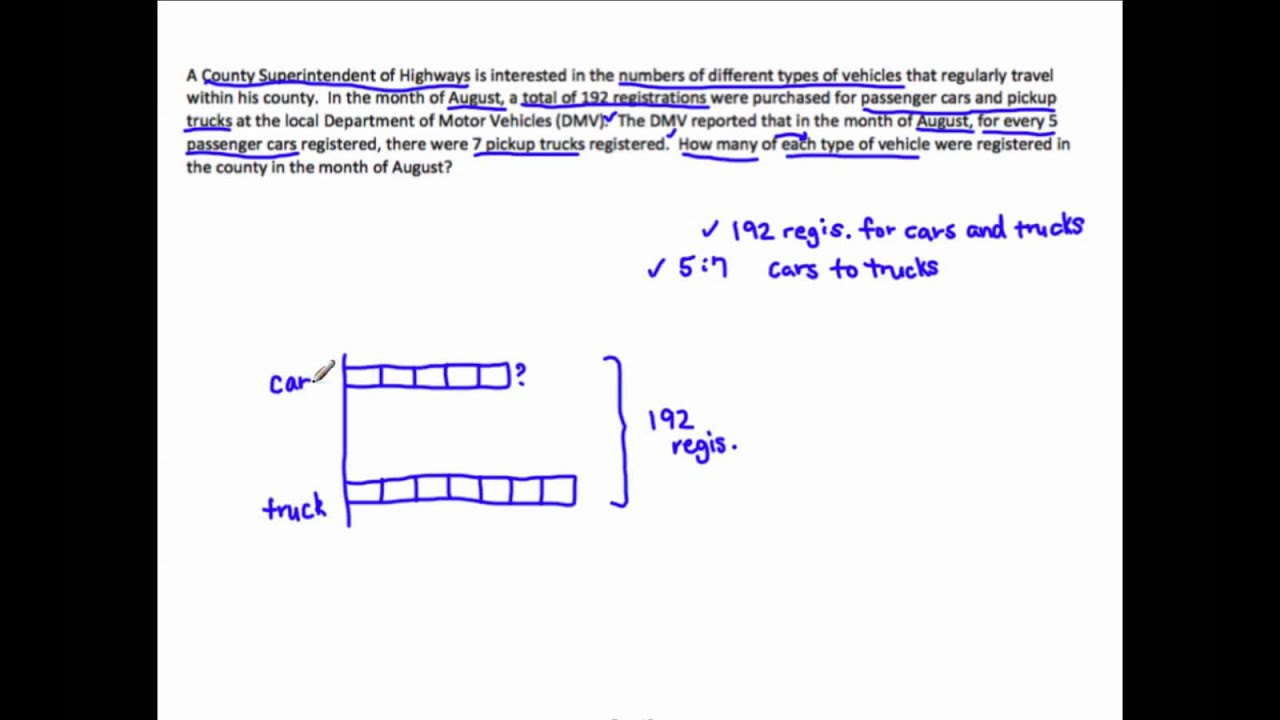 A County Superintendent of Highways is interested in the numbers of different types of vehicles that regularly travel
within his county. In the month of August, a total of 192 registrations were purchased for passenger cars and pickup
trucks at the local Department of Motor Vehicles (DMV). The DMV reported that in the month of August, for every 5
passenger cars registered, there were 7 pickup trucks registered. How many of each type of vehicle were registered in
the county in the month of August?
✓ 192 regis. for cars and trucks
✓ 5:7 cars to trucks
car ?
192
regis.
truck